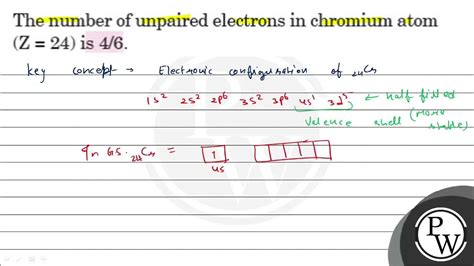 The number of unpaired electrons in chromium atom
(Z = 24) is 4/6.
Key concept → Electronic configuration of ₂₄Cr
1s² 2s² 2p⁶ 3s² 3p⁶ 4s¹ 3d⁵ ← half filled
valence shell (more stable)
In GS. ₂₄Cr = 1
4s
PW